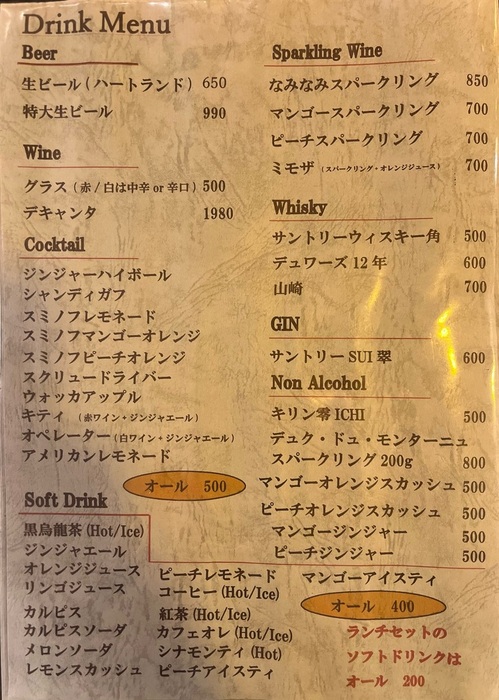 Drink Menu
Beer
生ビール (ハートランド) 650
特大生ビール 990
Wine
グラス (赤 / 白は中辛 or 辛口) 500
デキャンタ 1980
Cocktail
ジンジャーハイボール
シャンディガフ
スミノフレモネード
スミノフマンゴーオレンジ
スミノフピーチオレンジ
スクリュードライバー
ウォッカアップル
キティ (赤ワイン+ジンジャエール)
オペレーター (白ワイン+ジンジャエール)
アメリカンレモネード
オール 500
Sparkling Wine
なみなみスパークリング 850
マンゴースパークリング 700
ピーチスパークリング 700
ミモザ (スパークリング・オレンジジュース) 700
Whisky
サントリーウィスキー角 500
デュワーズ 12 年 600
山崎 700
GIN
サントリー SUI 翠 600
Non Alcohol
キリン零 ICHI 500
デュク・ドゥ・モンターニュ
スパークリング 200g 800
マンゴーオレンジスカッシュ 500
ピーチオレンジスカッシュ 500
マンゴージンジャー 500
ピーチジンジャー 500
Soft Drink
黒烏龍茶 (Hot/Ice)
ジンジャエール
オレンジジュース
リンゴジュース
カルピス
カルピスソーダ
メロンソーダ
レモンスカッシュ
ピーチレモネード
コーヒー (Hot/Ice)
紅茶 (Hot/Ice)
カフェオレ (Hot/Ice)
シナモンティ (Hot)
ピーチアイスティ
マンゴーアイスティ
オール 400
ランチセットの
ソフトドリンクは
オール 200